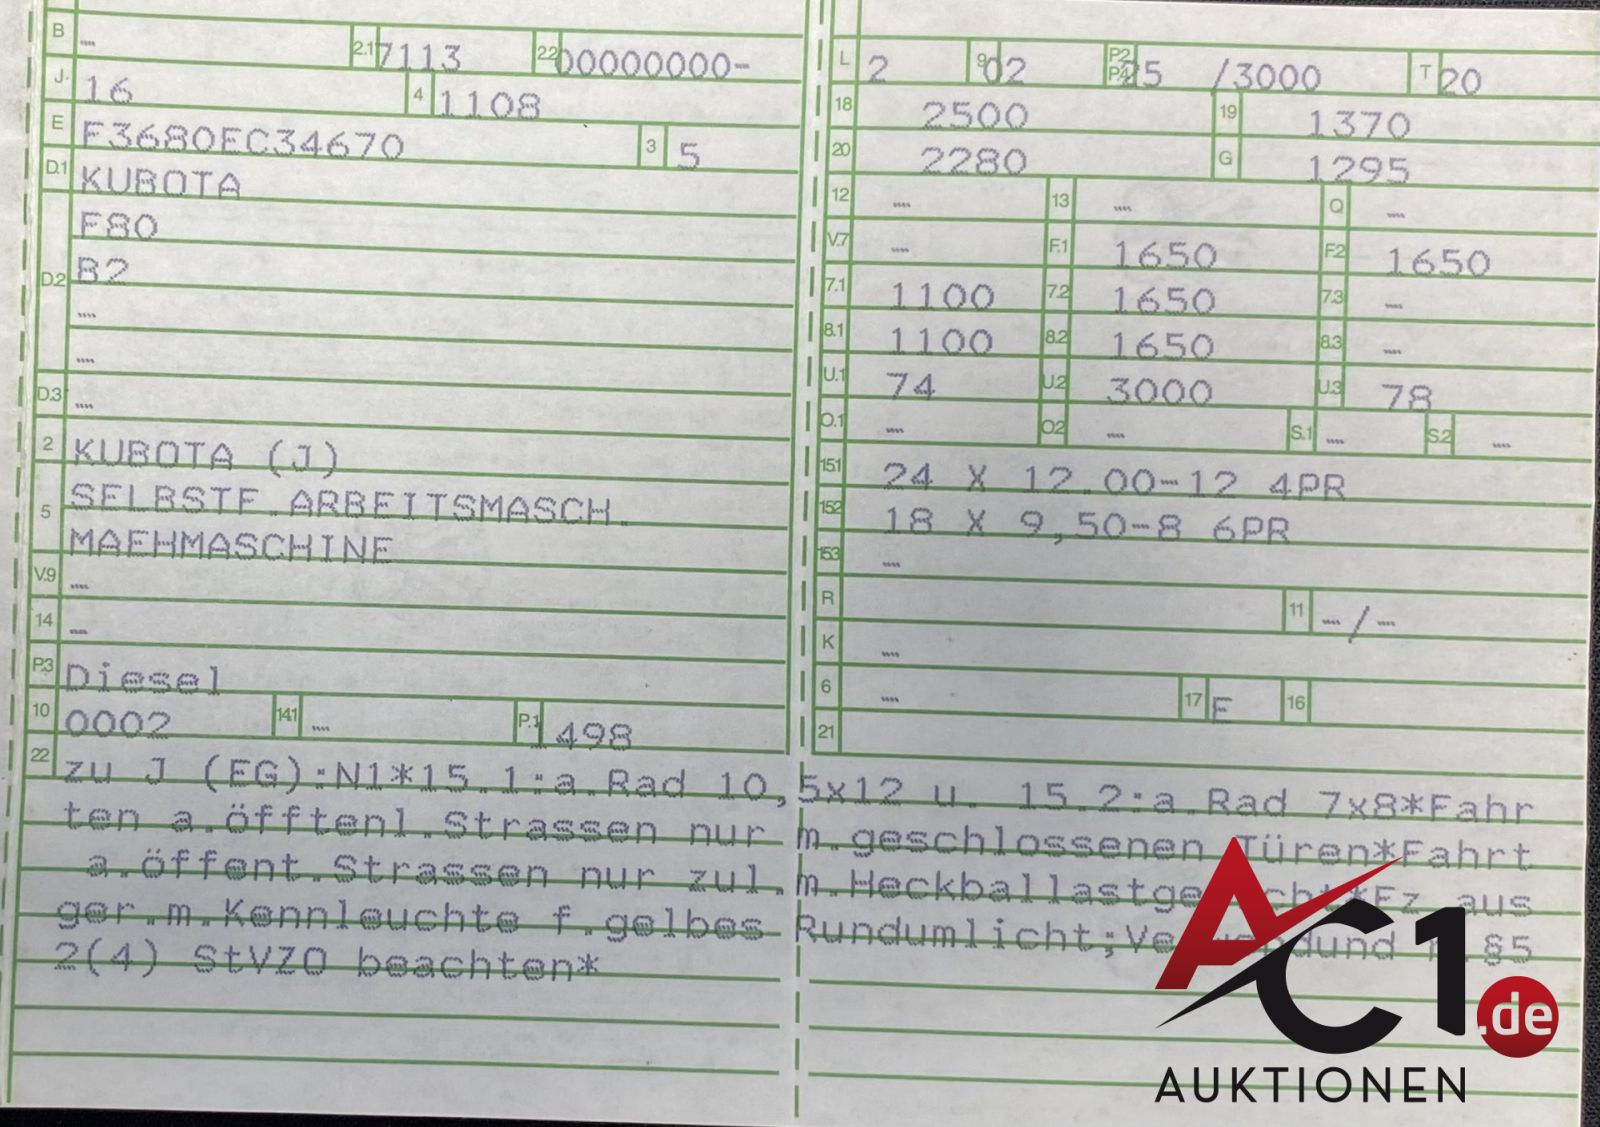 B --- 2.1 7113 2.2 00000000-
J 16 4 1108
E F3680EC34670 3 5
D.1 KUBOTA
F80
D.2 B2
---
---
D.3 ---
2 KUBOTA (J)
5 SELBSTF.ARBEITSMASCH.
MAEHMASCHINE
V.9 ---
14 ---
P.3 Diesel
10 0002 14.1 --- P.1 1498
L 2 9 02 P.2 P.4 25 /3000 T 20
18 2500 19 1370
20 2280 G 1295
12 --- 13 --- Q ---
V.7 --- F.1 1650 F.2 1650
7.1 1100 7.2 1650 7.3 ---
8.1 1100 8.2 1650 8.3 ---
U.1 74 U.2 3000 U.3 78
O.1 --- O.2 --- S.1 --- S.2 ---
15.1 24 X 12.00-12 4PR
15.2 18 X 9,50-8 6PR
15.3 ---
R 11 ---/---
K ---
6 --- 17 E 16
21
22 zu J (EG):N1*15.1:a.Rad 10,5x12 u. 15.2:a.Rad 7x8*Fahr
ten a.öfftenl.Strassen nur m.geschlossenen Türen*Fahrt
a.öffent.Strassen nur zul.m.Heckballastge *Fz aus
ger.m.Kennleuchte f.gelbes Rundumlicht; §5
2(4) StVZO beachten*
AC1.de
AUKTIONEN